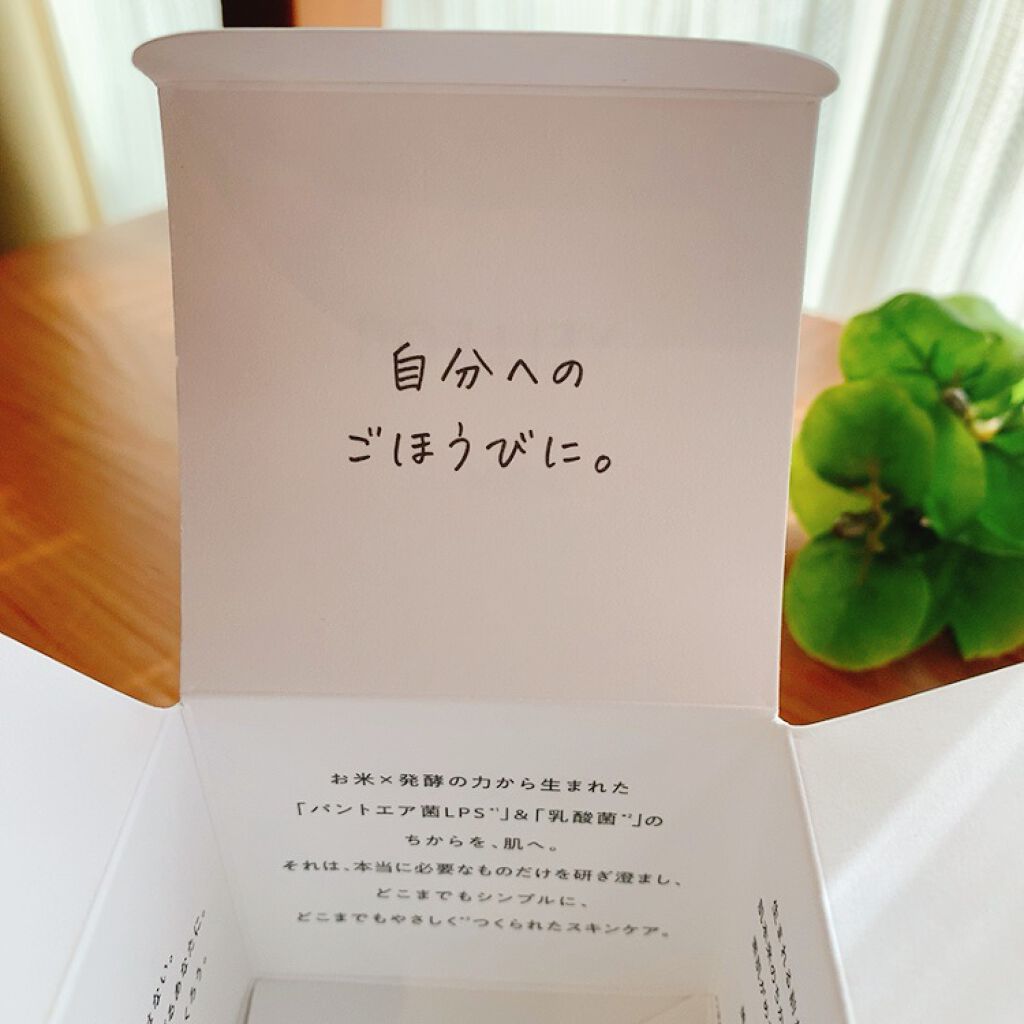 自分への
ごほうびに。
お米×発酵の力から生まれた
「パントエア菌LPS*¹」&「乳酸菌*²」の
ちからを、肌へ。
それは、本当に必要なものだけを研ぎ澄まし、
どこまでもシンプルに、
どこまでもやさしく*³つくられたスキンケア。